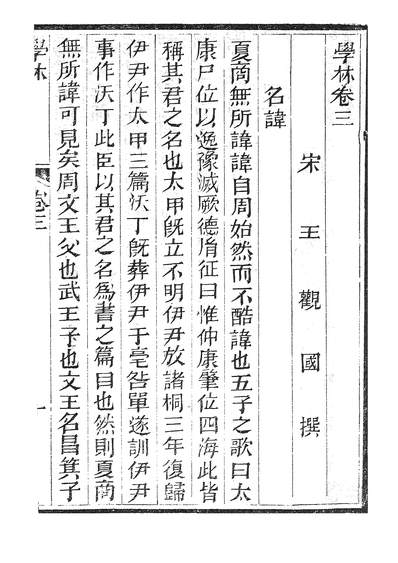 學林卷三
宋王觀國撰
名諱
夏商無所諱諱自周始然而不酷諱也五子之歌曰太
康尸位以逸豫滅厥德胤征曰惟仲康肇位四海此皆
稱其君之名也太甲旣立不明伊尹放諸桐三年復歸
伊尹作太甲三篇沃丁旣葬伊尹于亳咎單遂訓伊尹
事作沃丁此臣以其君之名爲書之篇目也然則夏商
無所諱可見矣周文王父也武王子也文王名昌箕子
學林
卷三
一